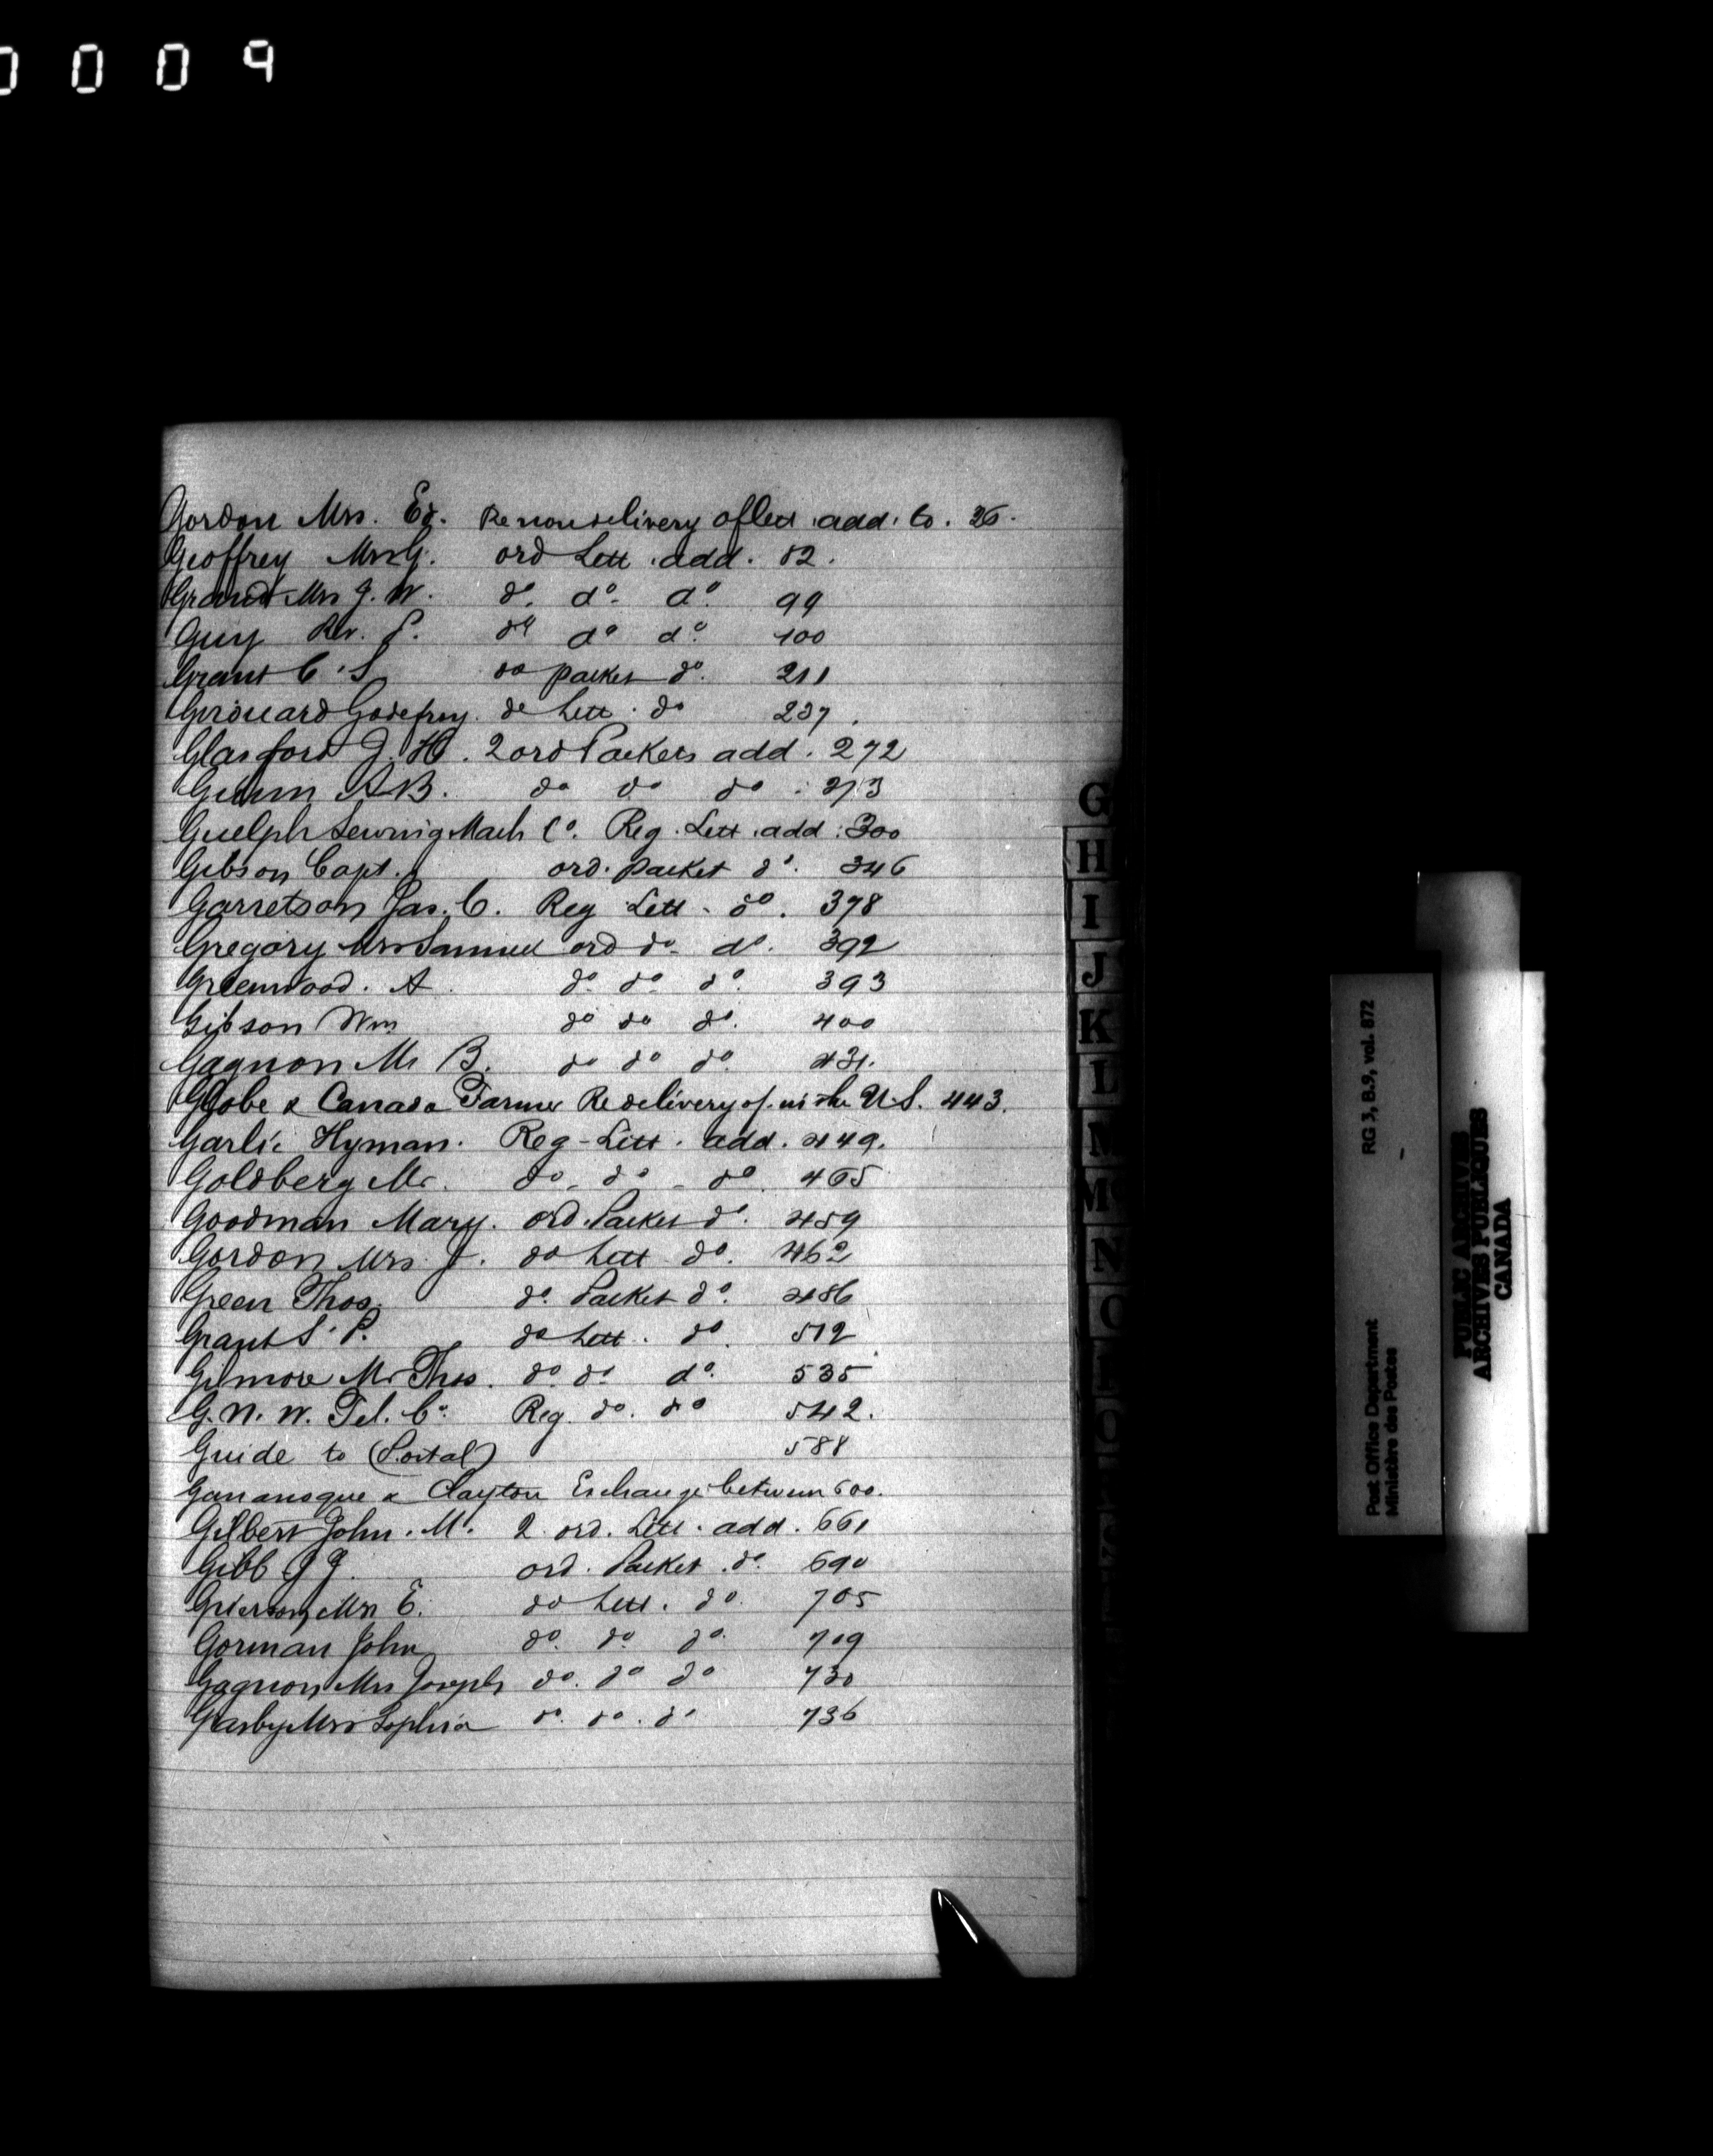 0009
Gordon Mrs. Ed. Re non delivery of lett. add. to. 36.
Geoffrey Mrs G. ord Lett. add. 82.
Grand Mrs J. W. do. do. do. 99
Guy Rev. P. do do do. 100
Grant C. S. do packet do. 211
Girouard Godefroy. do Lett. do 237.
Glasford J. H. 2 ord Packets add. 272
Gunn A B. do do do. 273
Guelph Sewing Mach Co. Reg. Lett. add. 300
Gibson Capt. ord. packet do. 346
Garretson Jas. C. Reg Lett. do. 378
Gregory Mrs Samuel ord do. do. 392
Greenwood. A. do. do. do. 393
Gibson Wm do do do. 400
Gagnon Mr B. do do do. 431.
Globe & Canada Farmer Re delivery of. in the U.S. 443.
Garlic Hyman. Reg-Lett. add. 449.
Goldberg Mr. do. do. do. 455
Goodman Mary. ord. Packet do. 459
Gordon Mrs. J. do Lett do. 462
Green Thos. do. Packet do. 486
Grant S. P. do Lett. do. 512
Gilmore Mr Thos. do. do. do. 535
G. N. W. Tel. Co. Reg. do. do 542.
Guide to (Postal) 588
Gananoque & Clayton Exchange between 600.
Gilbert John. M. 2 ord. Lett. add. 661
Gibb J J. ord. Packet. do. 690
Grierson Mrs E. do Lett. do. 705
Gorman John do. do. do. 709
Gagnon Mrs Joseph do. do do 730
Mrs Sophia do. do. do 736
G
H
I
J
K
L
M
N
O
RG 3, B.9, vol. 872
Post Office Department
Ministère des Postes
PUBLIC ARCHIVES
ARCHIVES PUBLIQUES
CANADA